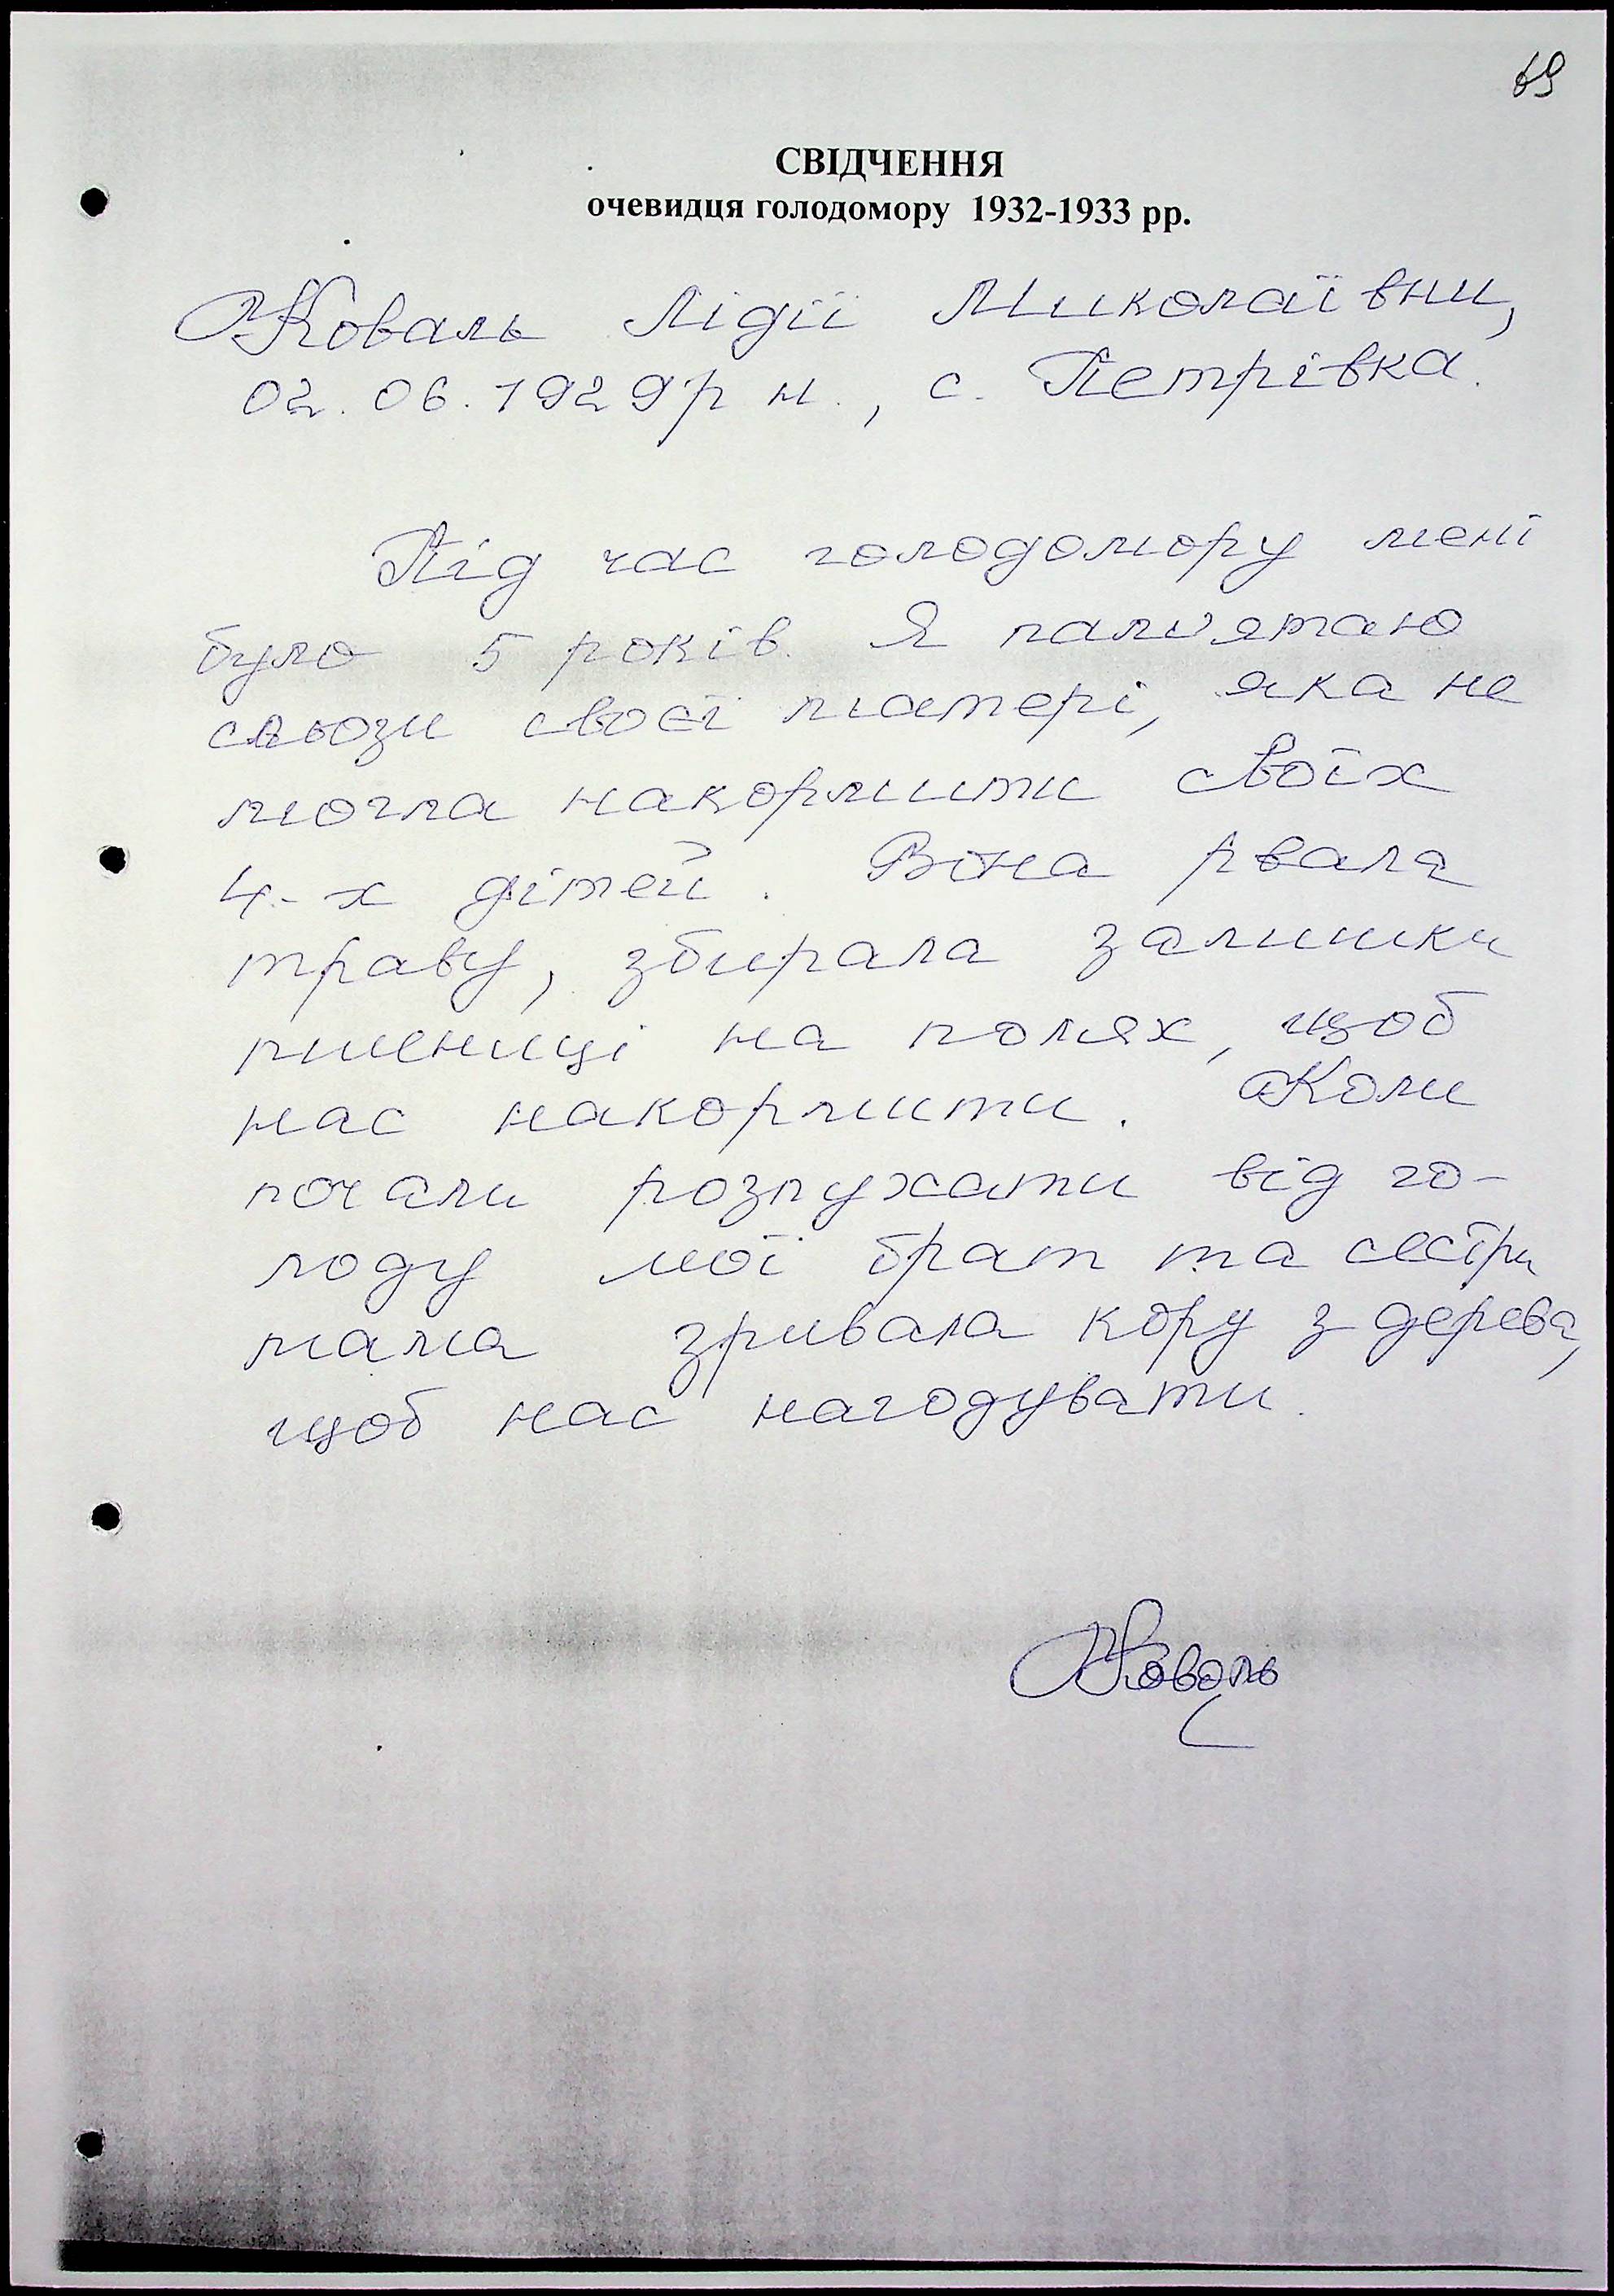 69
СВІДЧЕННЯ
очевидця голодомору 1932-1933 рр.
Коваль Лідії Миколаївни,
02.06.1929 р н., с. Петрівка.
Під час голодомору мені
було 5 років. Я пам'ятаю
сльози своєї матері, яка не
могла накормити своїх
4-х дітей. Вона рвала
траву, збирала залишки
пшениці на полях, щоб
нас накормити. Коли
почали розпухати від го-
лоду мої брат та сестри
мама зривала кору з дерева,
щоб нас нагодувати.
Коваль